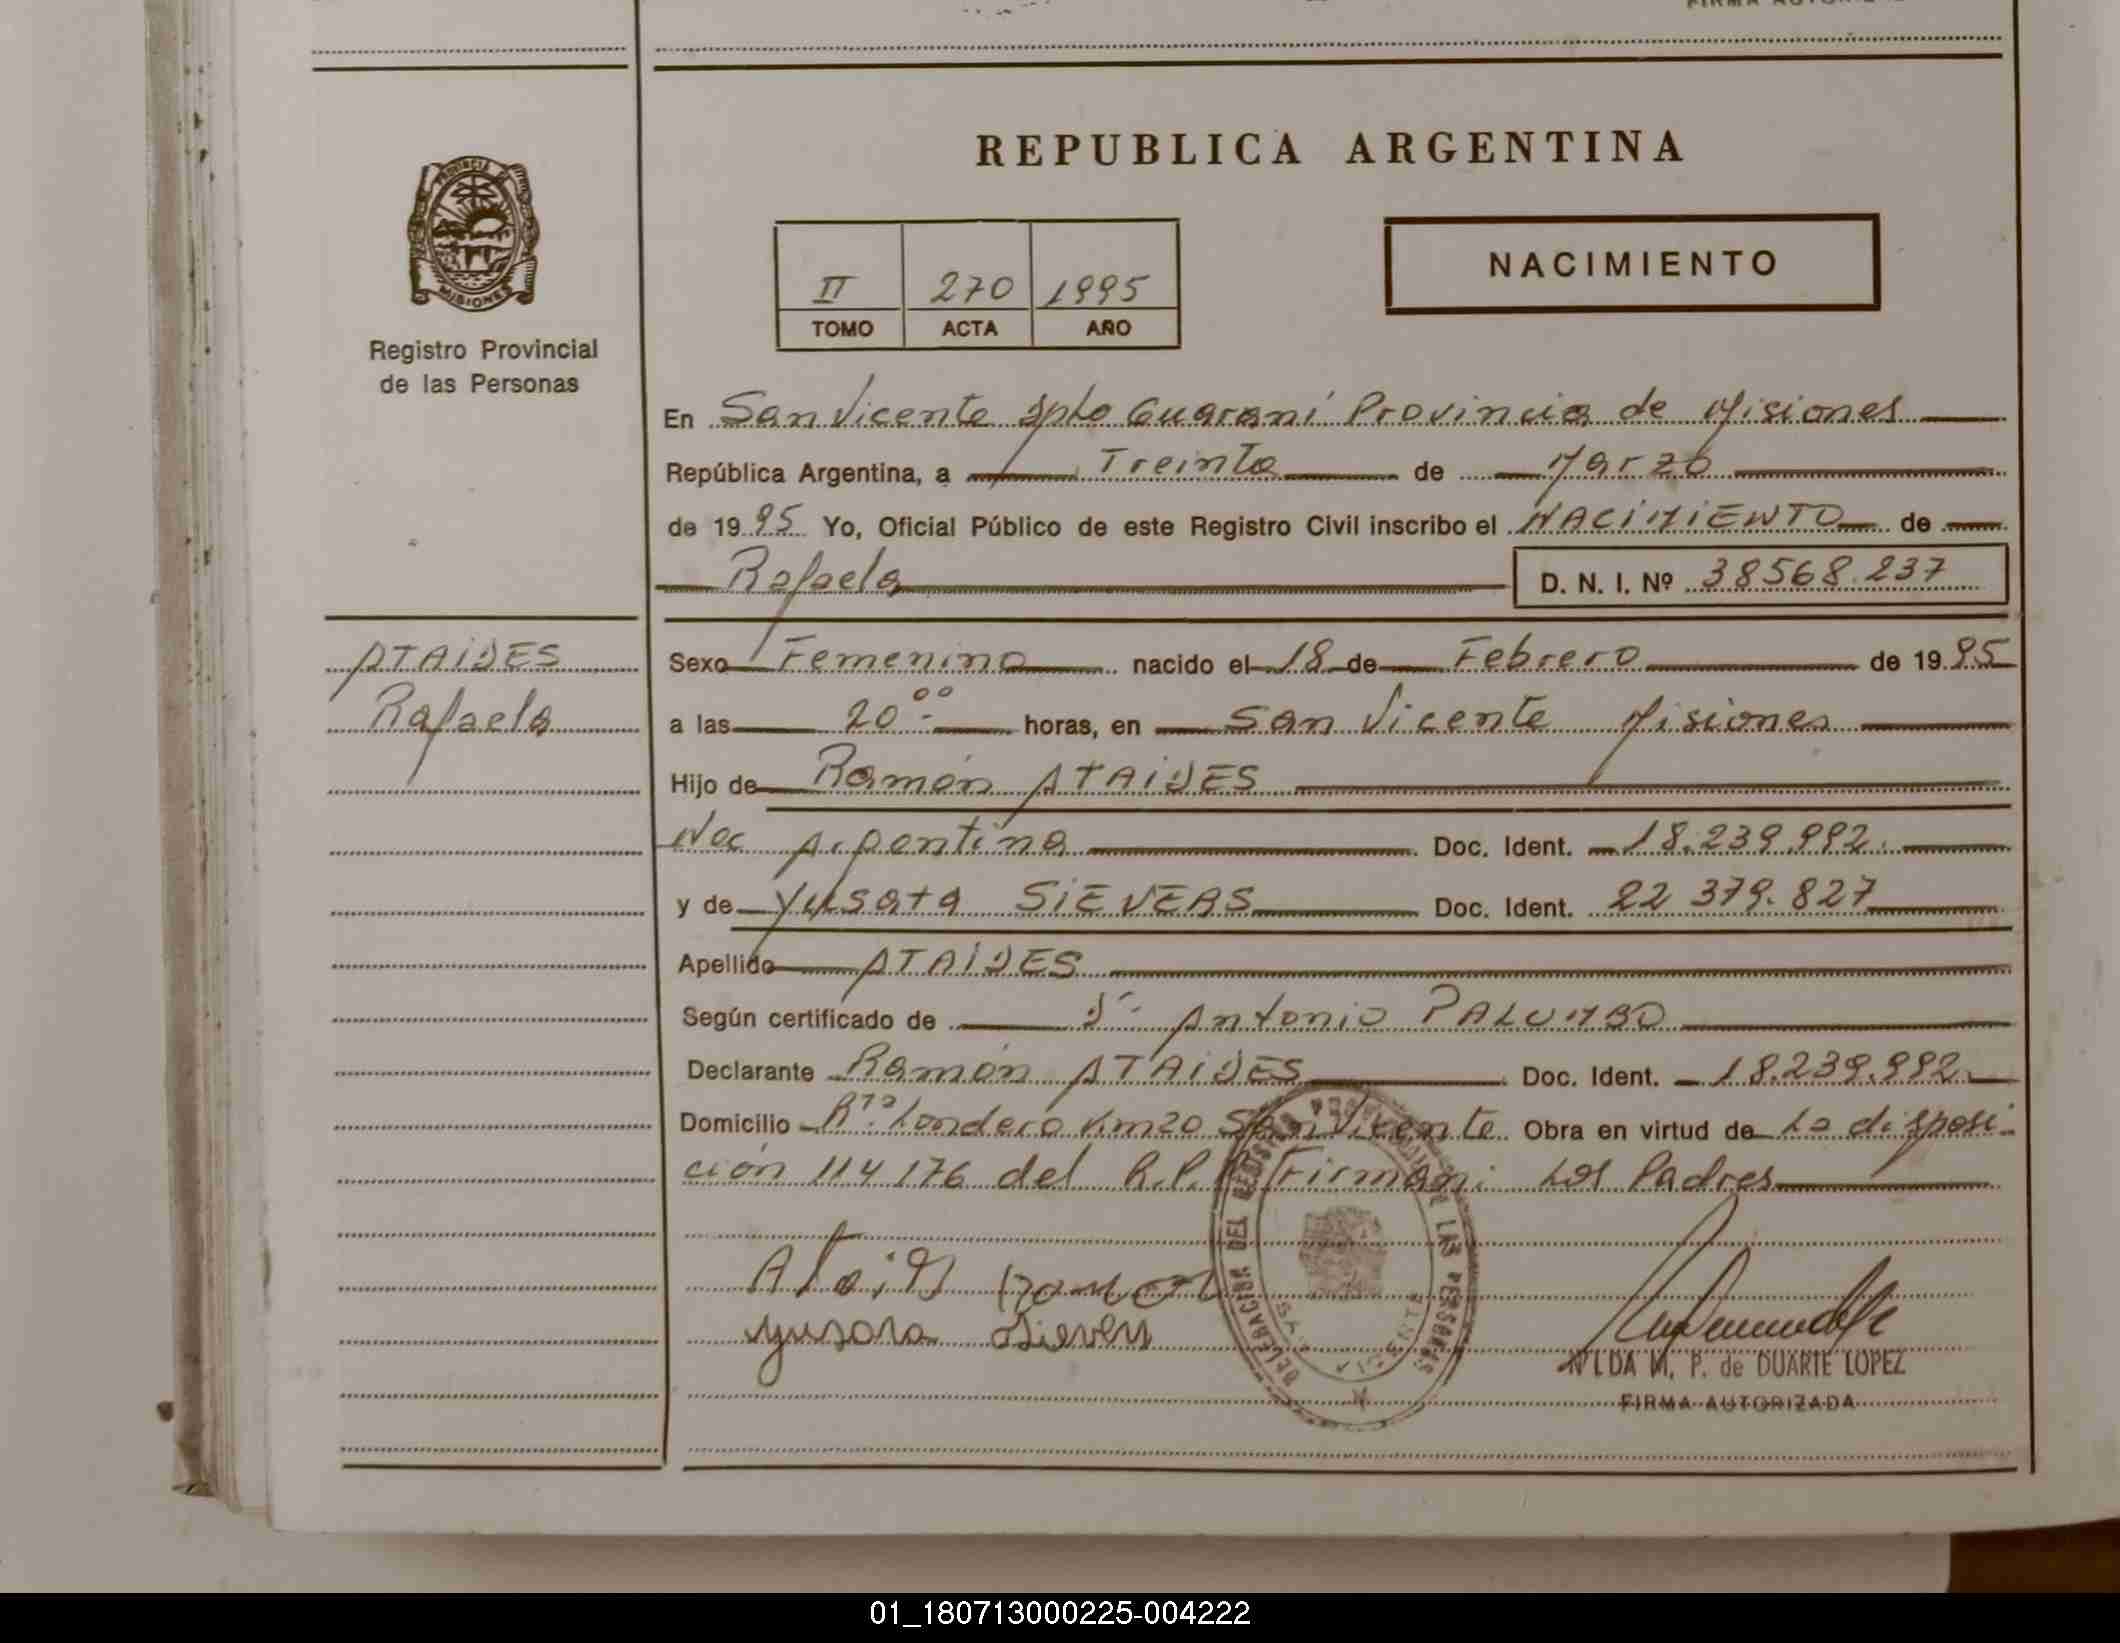 FIRMA AUTORIZADA
REPUBLICA ARGENTINA
PROVINCIA DE
MISIONES
Registro Provincial
de las Personas
NACIMIENTO
II 270 1995
TOMO ACTA AÑO
En San Vicente Dpto Guaraní Provincia de Misiones
República Argentina, a Treinta de Marzo
de 1995 Yo, Oficial Público de este Registro Civil inscribo el NACIMIENTO de
Rafaela D. N. I. Nº 38568.237
ATAIDES
Rafaela
Sexo Femenino nacido el 18 de Febrero de 1995
a las 20:00 horas, en San Vicente Misiones
Hijo de Ramón ATAIDES
Nac Argentina Doc. Ident. 18.239.992.
y de Yusara SIEVERS Doc. Ident. 22 379.827
Apellido ATAIDES
Según certificado de Dr. Antonio PALUMBO
Declarante Ramón ATAIDES Doc. Ident. 18.239.992.
Domicilio Rta. Londero Km20 San Vicente Obra en virtud de La disposi-
ción 114/76 del R.P.P. Firman: Los Padres
DELEGACION DEL REGISTRO PROVINCIAL DE LAS PERSONAS
SAN VICENTE
Ataides Ramon
Yusara Sievers
NILDA M. P. de DUARTE LOPEZ
FIRMA AUTORIZADA
01_180713000225-004222